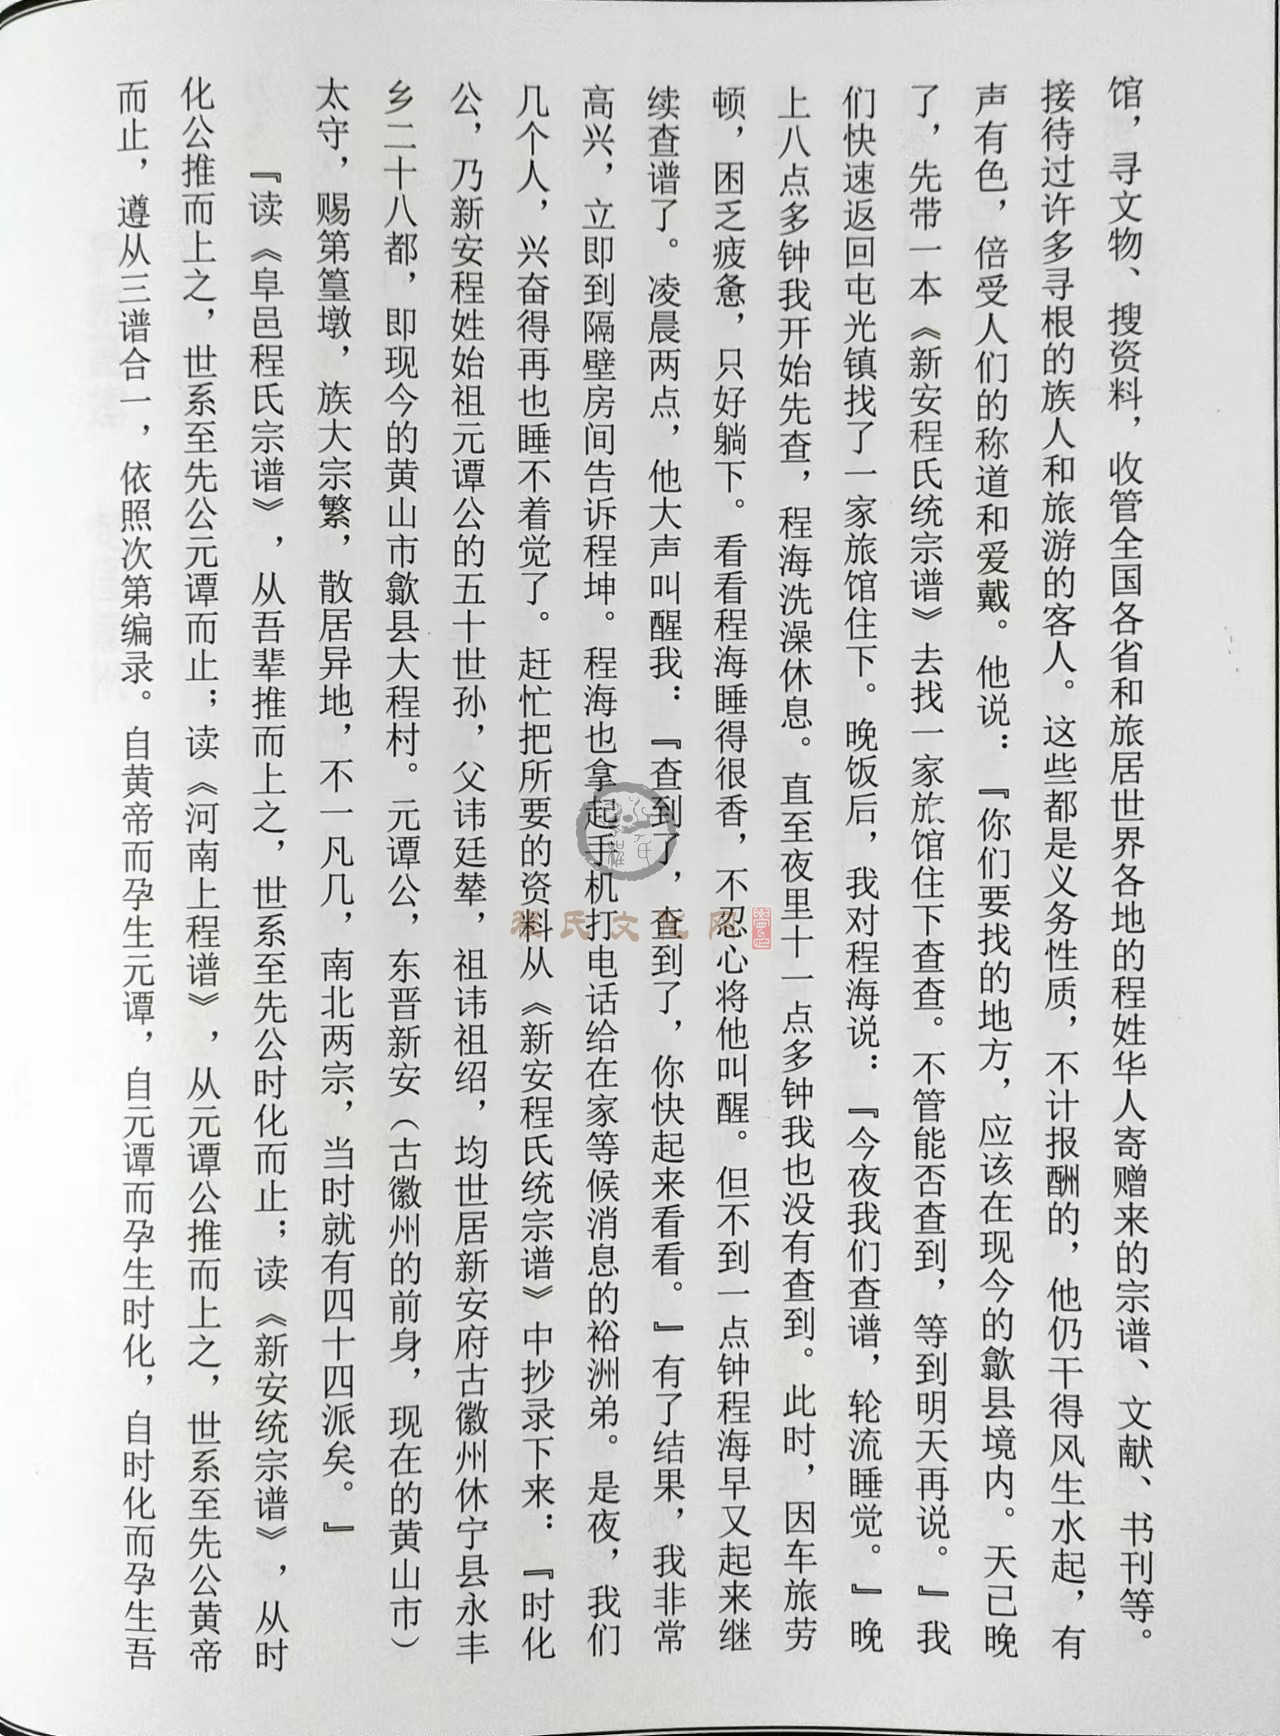 馆，寻文物、搜资料，收管全国各省和旅居世界各地的程姓华人寄赠来的宗谱、文献、书刊等。
接待过许多寻根的族人和旅游的客人。这些都是义务性质，不计报酬的，他仍干得风生水起，有
声有色，倍受人们的称道和爱戴。他说：『你们要找的地方，应该在现今的歙县境内。天已晚
了，先带一本《新安程氏统宗谱》去找一家旅馆住下查查。不管能否查到，等到明天再说。』我
们快速返回屯光镇找了一家旅馆住下。晚饭后，我对程海说：『今夜我们查谱，轮流睡觉。』晚
上八点多钟我开始先查，程海洗澡休息。直至夜里十一点多钟我也没有查到。此时，因车旅劳
顿，困乏疲惫，只好躺下。看看程海睡得很香，不忍心将他叫醒。但不到一点钟程海早又起来继
续查谱了。凌晨两点，他大声叫醒我：『查到了，查到了，你快起来看看。』有了结果，我非常
高兴，立即到隔壁房间告诉程坤。程海也拿起手机打电话给在家等候消息的裕洲弟。是夜，我们
几个人，兴奋得再也睡不着觉了。赶忙把所要的资料从《新安程氏统宗谱》中抄录下来：『时化
公，乃新安程姓始祖元谭公的五十世孙，父讳廷辇，祖讳祖绍，均世居新安府古徽州休宁县永丰
乡二十八都，即现今的黄山市歙县大程村。元谭公，东晋新安（古徽州的前身，现在的黄山市）
太守，赐第篁墩，族大宗繁，散居异地，不一凡几，南北两宗，当时就有四十四派矣。』
『读《阜邑程氏宗谱》，从吾辈推而上之，世系至先公时化而止；读《新安统宗谱》，从时
化公推而上之，世系至先公元谭而止；读《河南上程谱》，从元谭公推而上之，世系至先公黄帝
而止，遵从三谱合一，依照次第编录。自黄帝而孕生元谭，自元谭而孕生时化，自时化而孕生吾
程氏文化网